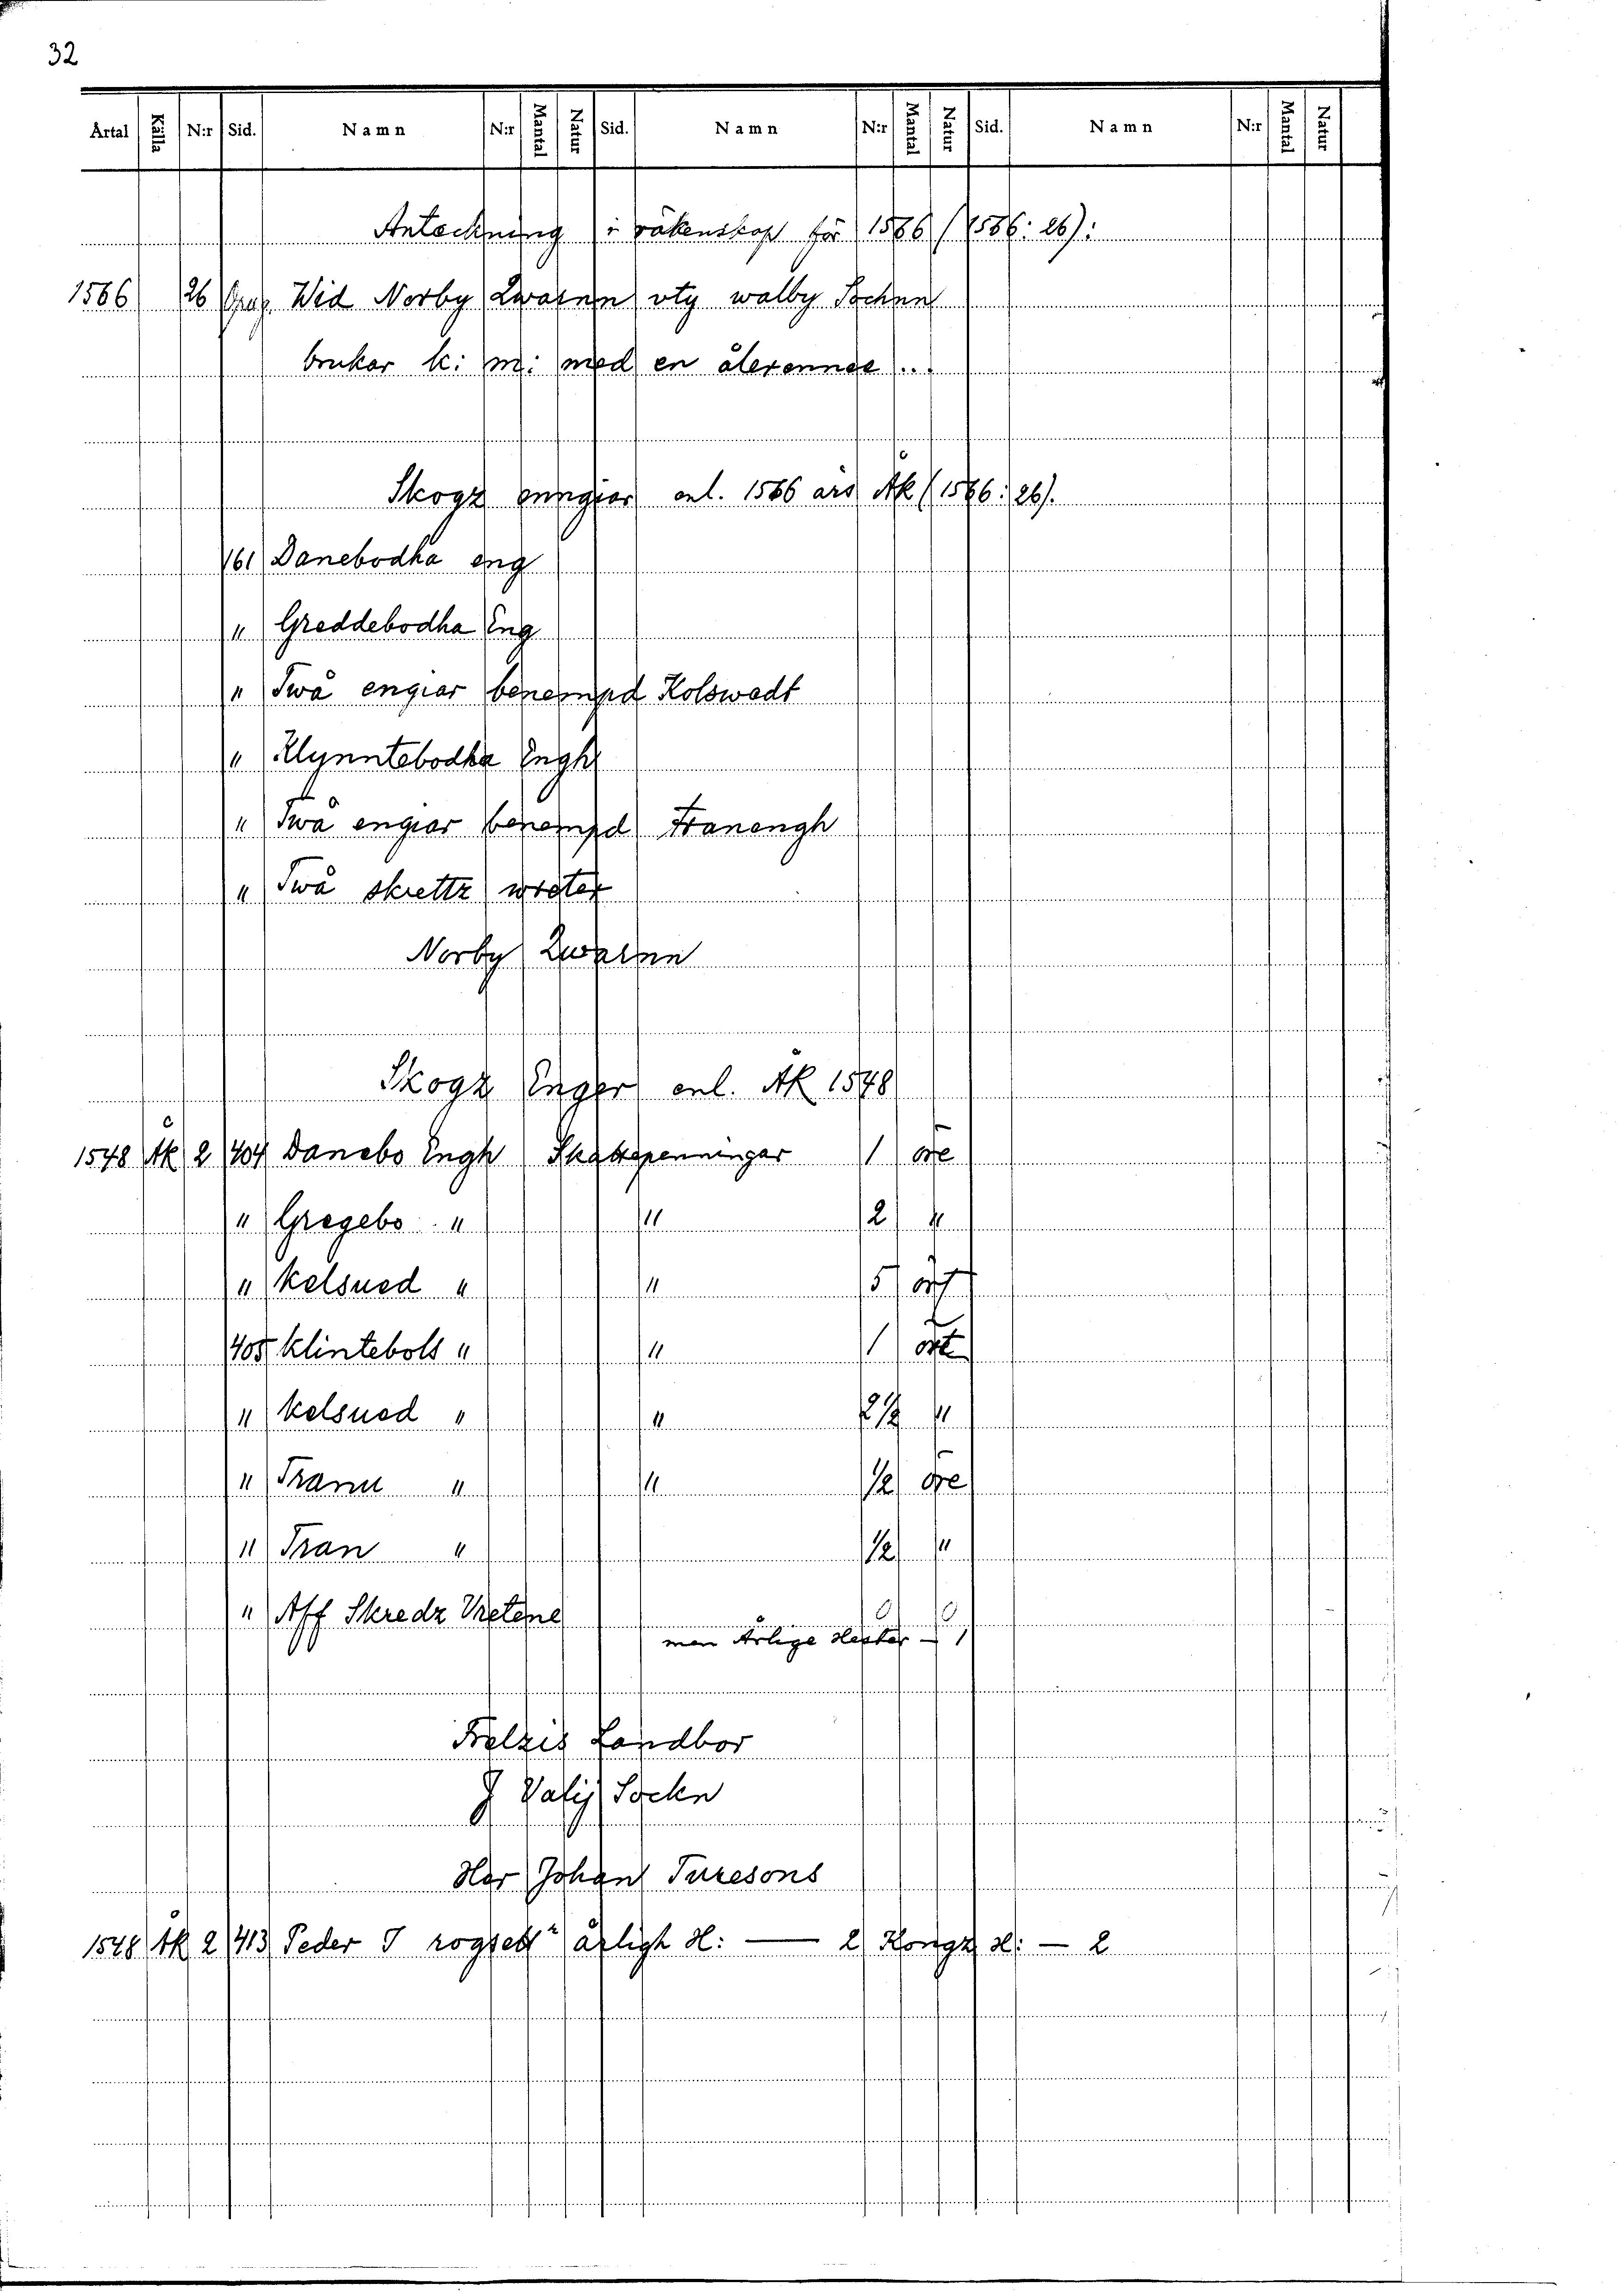 32
Årtal Källa N:r Sid. Namn N:r Mantal Natur Sid. Namn N:r Mantal Natur Sid. Namn N:r Mantal Natur
Anteckning i räkenskap för 1566 (1566: 26):
1566 26 Wid Norby Qwarnn vty walby Sochnn
brukar k: m: med en ålerennee ...
Skogz enngiar enl. 1566 års ÅK (1566: 26).
161 Danebodha eng
" Greddebodha Eng
" Twå engiar benempd Kolswedt
" Klynntebodha Engh
" Twå engiar benempd Tranengh
" Twå skrettz wreter
Norby Qwarnn
Skogz Enger enl. ÅK 1548
1548 ÅK 2 404 Danebo Engh Skattepenningar 1 öre
" Gregebo " " 2 "
" kelsued " " 5 ört
405 klintebols " " 1 ört
" kelsued " " 2 1/2 "
" Tranu " " 1/2 öre
" Tran " 1/2 "
" Aff Skredz Vretene 0 0
men Årlige Hester - 1
Frelzis Landbor
J Valij Sockn
Her Johan Turesons
1548 ÅK 2 413 Peder J rogsett årligh H: — 2 Kongz H: — 2